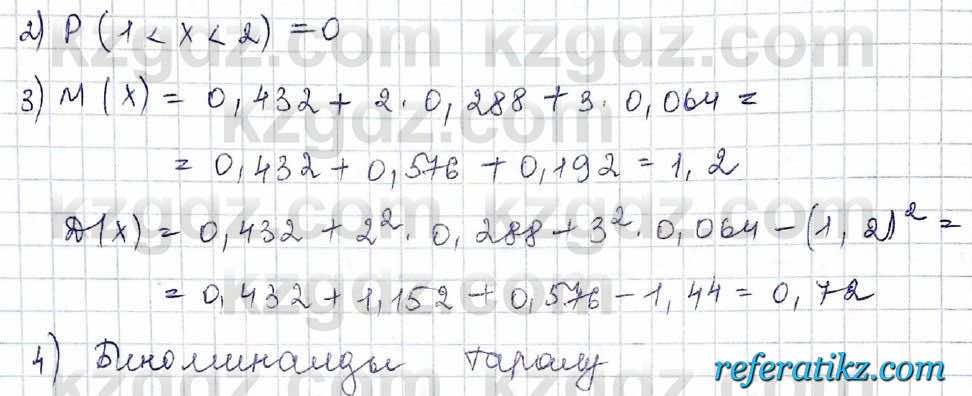 2) P (1 < x < 2) = 0
3) M (X) = 0,432 + 2 · 0,288 + 3 · 0,064 =
= 0,432 + 0,576 + 0,192 = 1,2
Д(X) = 0,432 + 2² · 0,288 + 3² · 0,064 - (1,2)² =
= 0,432 + 1,152 + 0,576 - 1,44 = 0,72
4) Биноминалды таралу
referatikz.com
kzgdz.com